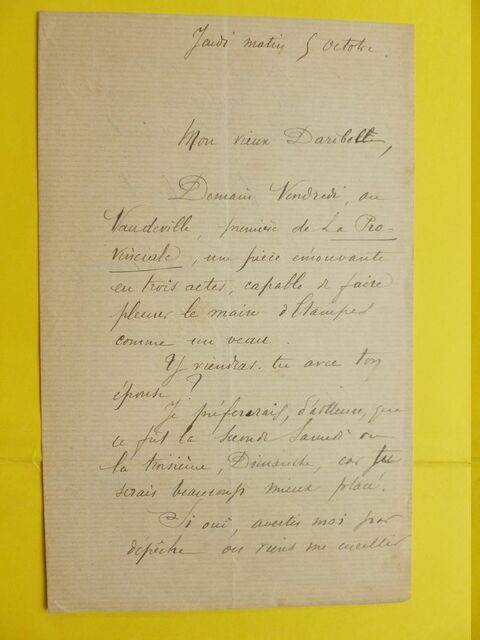 Jeudi matin 5 octobre.
Mon vieux Daribelle,
Demain Vendredi, au
Vaudeville, première de La Pro-
vinciale, un pièce émouvante
en trois actes, capable de faire
pleurer le maire d'Etampes
comme un veau.
Y viendras-tu avec ton
épouse ?
Je préfèrerais, d'ailleurs, que
ce fût la seconde Samedi ou
la troisième, Dimanche, car tu
serais beaucoup mieux placé.
Si oui, avertis moi par
dépêche ou viens me cueillir